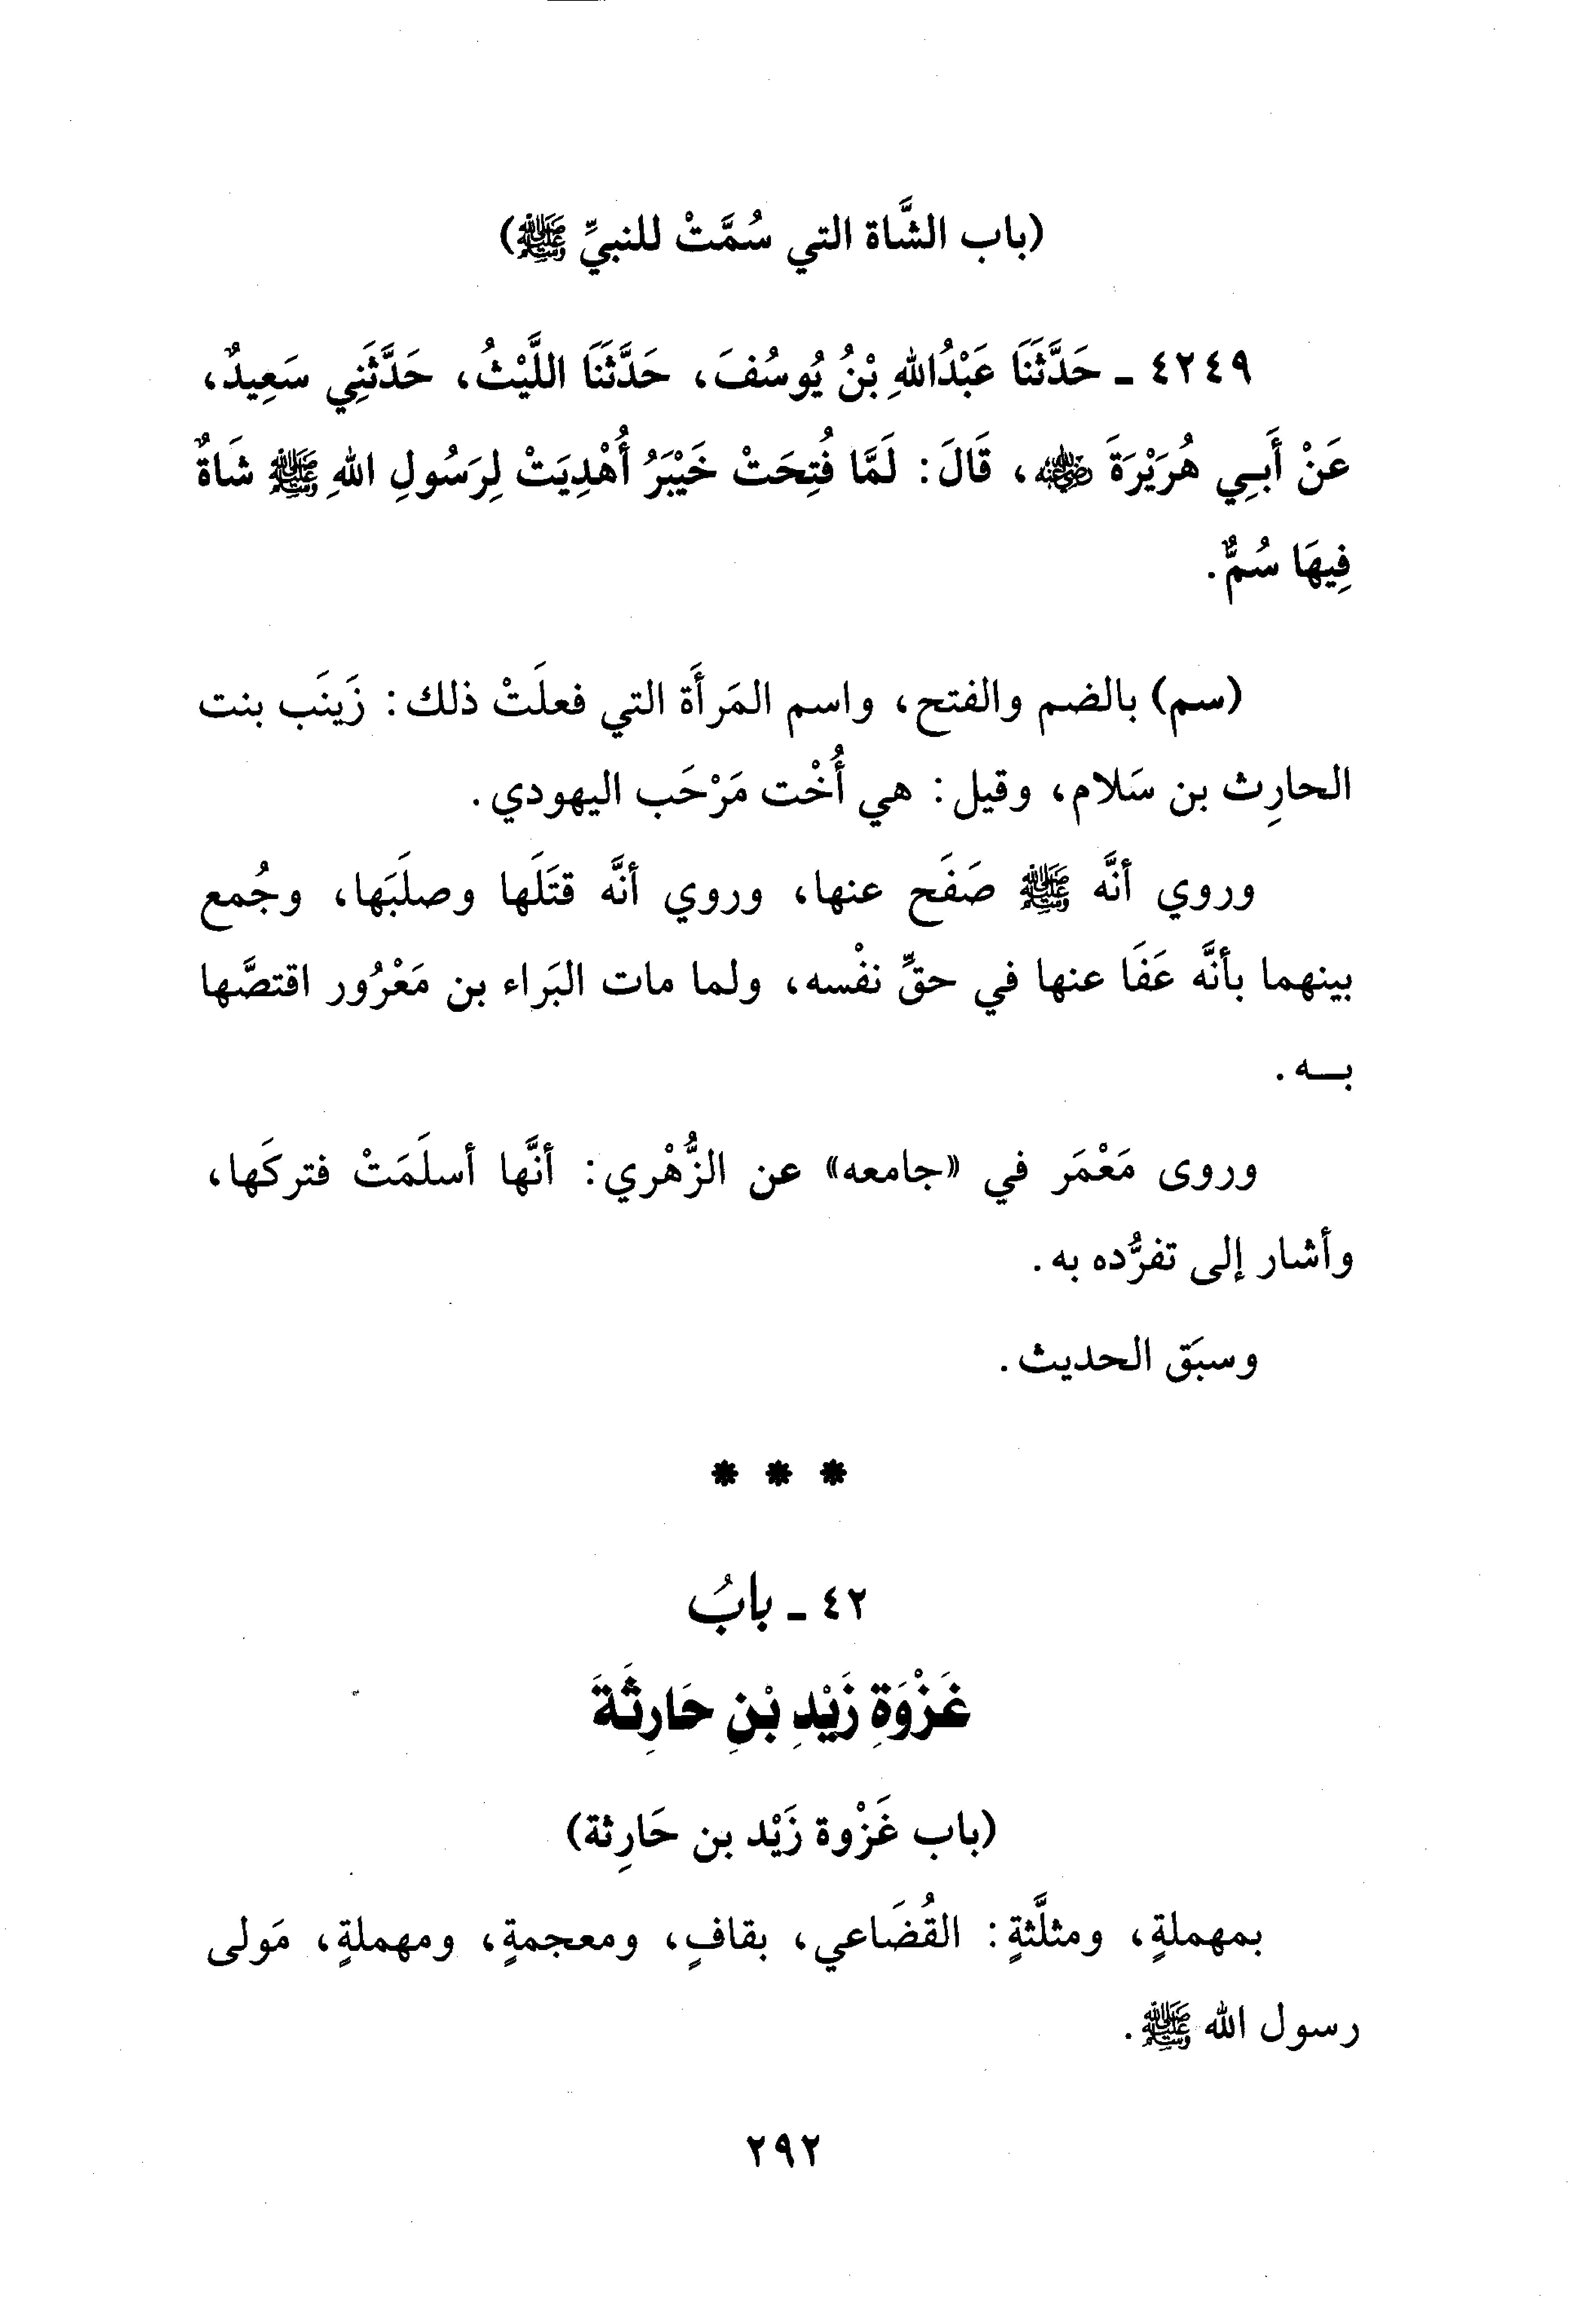 (باب الشَّاة التي سُمَّتْ للنبيِّ ﷺ)
٤٢٤٩ ـ حَدَّثَنَا عَبْدُاللهِ بْنُ يُوسُفَ، حَدَّثَنَا اللَّيْثُ، حَدَّثَنِي سَعِيدٌ،
عَنْ أَبِي هُرَيْرَةَ ﵁، قَالَ: لَمَّا فُتِحَتْ خَيْبَرُ أُهْدِيَتْ لِرَسُولِ اللهِ ﷺ شَاةٌ
فِيهَا سُمٌّ.
(سم) بالضم والفتح، واسم المَرأَة التي فعلَتْ ذلك: زَينَب بنت
الحارِث بن سَلام، وقيل: هي أُخْت مَرْحَب اليهودي.
وروي أنَّه ﷺ صَفَح عنها، وروي أنَّه قتَلَها وصلَبَها، وجُمع
بينهما بأنَّه عَفَا عنها في حقِّ نفْسه، ولما مات البَراء بن مَعْرُور اقتصَّها
بــه.
وروى مَعْمَر في «جامعه» عن الزُّهْري: أنَّها أسلَمَتْ فتركَها،
وأشار إلى تفرُّده به.
وسبَق الحديث.
* * *
٤٢ ـ بابُ
غَزْوَةِ زَيْدِ بْنِ حَارِثَةَ
(باب غَزْوة زَيْد بن حَارِثة)
بمهملةٍ، ومثلَّثةٍ: القُضَاعي، بقافٍ، ومعجمةٍ، ومهملةٍ، مَولى
رسول الله ﷺ.
٢٩٢